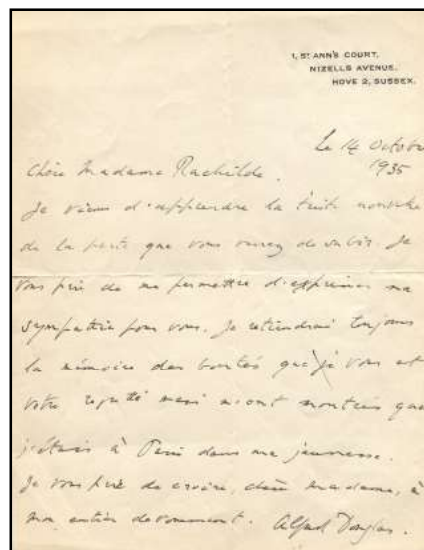 1, ST ANN'S COURT,
NIZELLS AVENUE,
HOVE 2, SUSSEX.
Le 14 Octobre
1935
Chère Madame Rachilde.
Je viens d'apprendre la triste nouvelle
de la perte que vous venez de subir. Je
vous prie de me permettre d'exprimer ma
sympathie pour vous. Je retiendrai toujours
la mémoire des bontés que vous et
votre mari m'ont montrés
j'étais à Paris dans ma jeunesse.
Je vous prie de croire, chère Madame, à
mon entier dévouement. Alfred Douglas.